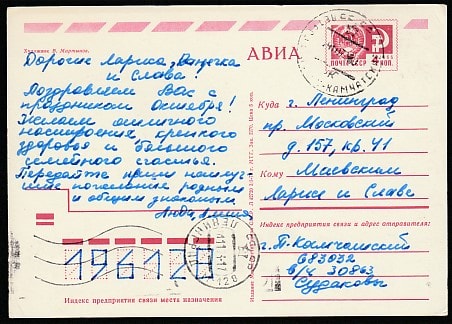 Художник В. Мартынов.
АВИА
ПОЧТА СССР
Дорогие Лариса, Ванечка
и Слава!
Поздравляем Вас с
праздником Октября!
Желаем отличного
настроения, крепкого
здоровья и большого
семейного счастья.
Передайте наши наилуч-
шие пожелания родным
и общим знакомым.
Куда г. Ленинград
пр. Московский
д. 157, кв. 41
Кому Маевским
Ларисе и Славе
Индекс предприятия связи и адрес отправителя:
г. П-Камчатский
683032
в/ч 30863
Судаковы
196128
Индекс предприятия связи места назначения
ЛЕНИНГРАД